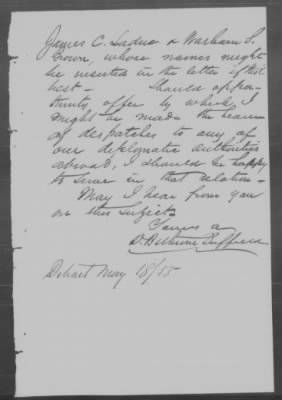 James C. Ladue & Warham S.
Brown, whose names might
be inserted in the letter if thot
best – Should oppor-
tunity offer by which I
might be made the bearer
of despatches to any of
our diplomatic authorities
abroad, I should be happy
to serve in that relation –
May I hear from you
on this subject
Yours &
D. Bethune Duffield
Detroit May 18/55